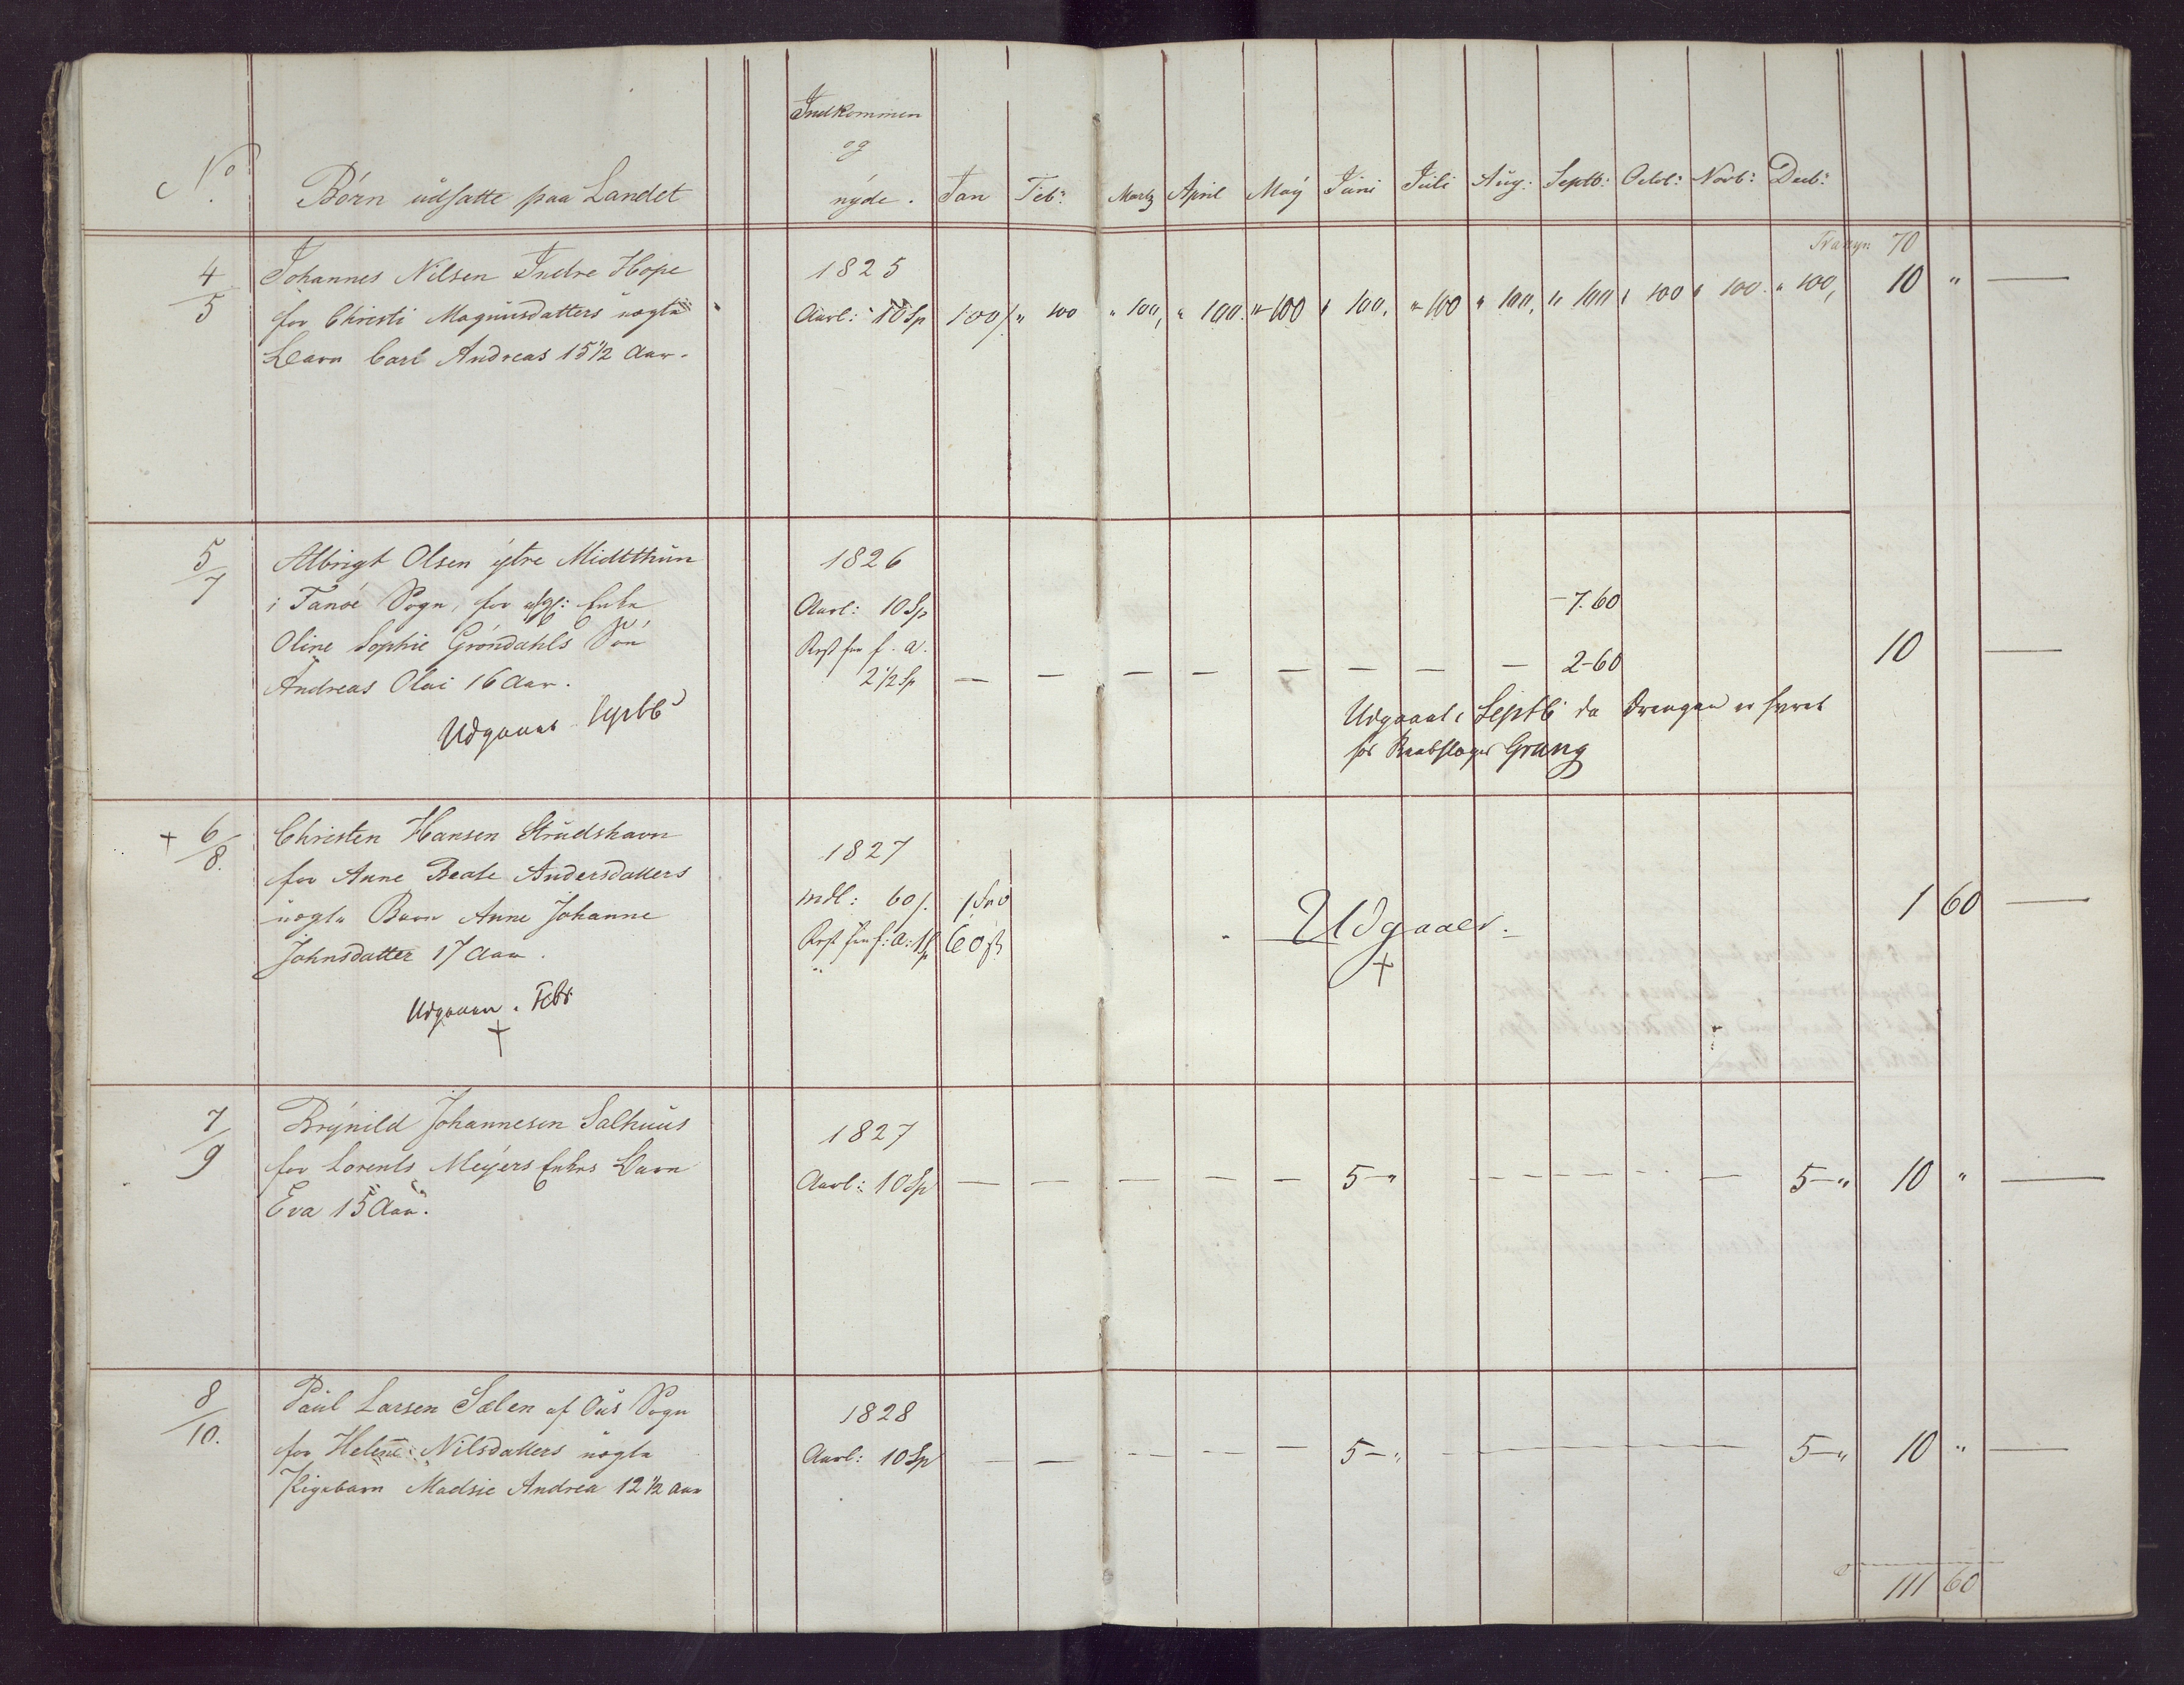 No. Børn udsatte paa Landet Indkommen og nyde. Jan Feb: Martz April May Juni Juli Aug: Septb: Octob: Novb: Decb:
Transp: 70
4/5 Johannes Nilsen Indre Hope 1825
for Christi Magnusdatters uægte Aarl: 10 Sp 100 " 100 " 100, " 100. " 100 " 100, " 100 " 100, " 100 " 100 " 100. " 100, 10 " —
Barn Carl Andreas 15 1/2 Aar.
5/7 Albrigt Olsen ytre Midtthun 1826
i Fanøe Sogn, for afg: Enke Aarl: 10 Sp — 7. 60
Oline Sophie Gröndahls Søn Rest fra f. a.
Andreas Olai 16 Aar. 2 1/2 Sp — — — — — — — — 2-60 10 —
Udgaaet Septb
Udgaaet i Septb da Drengen er
for Grung
+ 6/8. Christen Hansen Strudshavn 1827
for Anne Beate Andersdatters mdl: 60 1 60 —
uægte Barn Anne Johanne Rest fra f: a: 1 Sp 60
Johnsdatter 17 Aar.
Udgaaer.
+
Udgaaer. Febr
+
7/9 Brynild Johannesen Salhuus 1827
for Lorents Meyers Enkes Barn Aarl: 10 Sp — — — — — 5-" — — — — — 5-" 10 " —
Eva 15 Aar.
8/10. Paul Larsen Sælen af Ous Sogn 1828
for Helene Nilsdatters uægte Aarl: 10 Sp — — — — — 5-" — — — — — 5-" 10 " —
Pigebarn Madsie Andrea 12 1/2 Aar
111 60